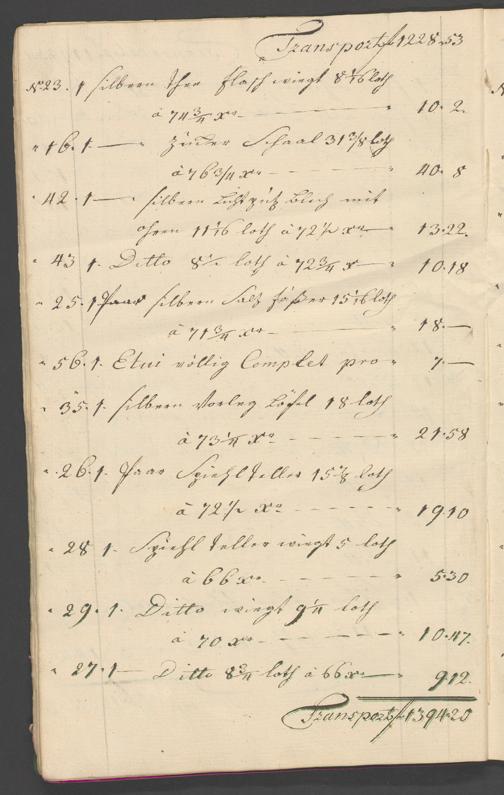 Transport f 1228.53
No 23. 1 silbern Thee flasch wiegt 8 1/16 loth
à 74 3/4 xr — 10. 2.
" 16. 1 — " Zucker Schaal 31 3/8 loth
à 76 3/4 xr — " 40. 8
" 42. 1 — silbern Lichtputz Blech mit
ohren 11 1/16 loth à 72 1/2 xr — " 13.22.
" 43 1. Ditto 8 1/2 loth à 72 3/4 x — " 10.18
" 25. 1 Paar silbern Saltz fäßer 15 1/16 loth
à 71 3/4 xr — " 18.—
" 56. 1. Etui völlig Complet pro " 7.—
" 35. 1. silbern Vorleg Löffel 18 loth
à 73 1/4 xr — " 21.58
" 26. 1. Paar Spiehl Teller 15 7/8 loth
à 72 1/2 xr — " 19.10
" 28 1. Spiehl Teller wiegt 5 loth
à 66 xr — " 5.30
" 29. 1. Ditto wiegt 9 1/4 loth
à 70 xr — " 10.47.
" 27. 1 — Ditto 8 3/4 loth à 66 x — " 9.12.
Transport f 1394.20